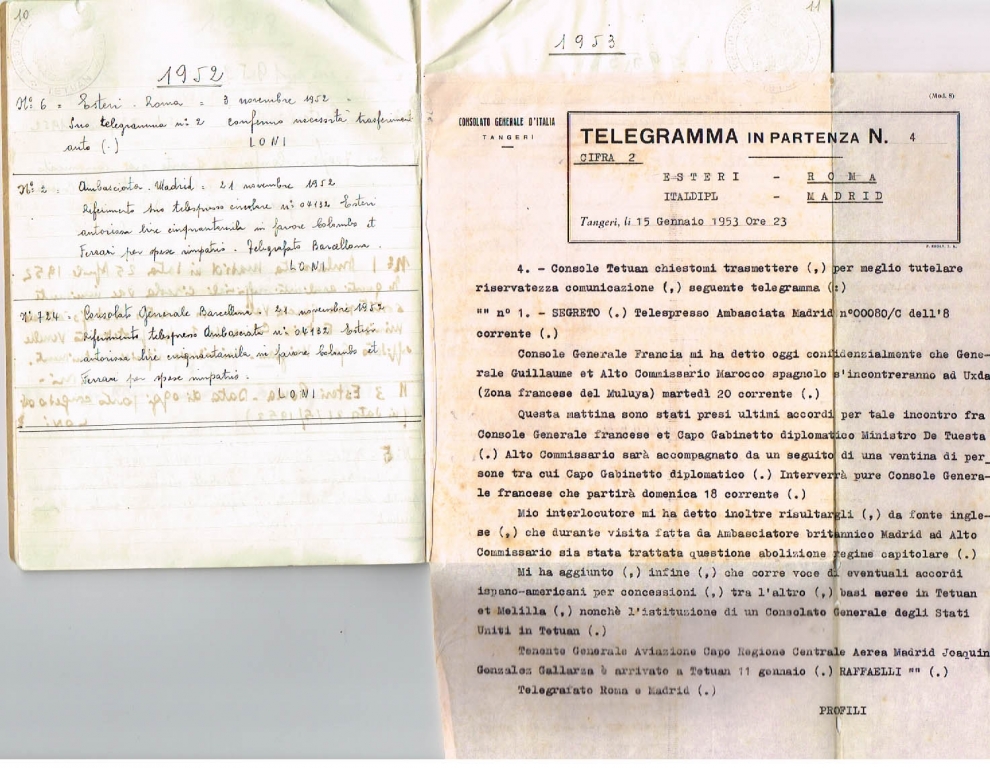 10
1952
Nº 6 = Esteri - Roma = 3 novembre 1952
Suo telegramma nº 2 confermo necessità trasferimento
auto (.)
LONI
Nº 2 = Ambasciata - Madrid = 21 novembre 1952
Riferimento suo telespresso circolare nº 04132 Esteri
autorizza lire cinquantamila in favore Colombo et
Ferrari per spese rimpatrio. Telegrafato Barcellona.
LONI
Nº 724 - Consolato Generale Barcellona - 21 novembre 1952
Riferimento telespresso Ambasciata nº 04132 Esteri
autorizza lire cinquantamila in favore Colombo et
Ferrari per spese rimpatrio.
LONI
11
1953
(Mod. 8)
CONSOLATO GENERALE D'ITALIA
TANGERI
TELEGRAMMA IN PARTENZA N. 4
CIFRA 2
ESTERI - ROMA
ITALDIPL - MADRID
Tangeri, li 15 Gennaio 1953 Ore 23
4. - Console Tetuan chiestomi trasmettere (,) per meglio tutelare
riservatezza comunicazione (,) seguente telegramma (:)
"" nº 1. - SEGRETO (.) Telespresso Ambasciata Madrid nº00080/C dell'8
corrente (.)
Console Generale Francia mi ha detto oggi confidenzialmente che Gene-
rale Guillaume et Alto Commissario Marocco spagnolo s'incontreranno ad Uxda
(Zona francese del Muluya) martedì 20 corrente (.)
Questa mattina sono stati presi ultimi accordi per tale incontro fra
Console Generale francese et Capo Gabinetto diplomatico Ministro De Tuesta
(.) Alto Commissario sarà accompagnato da un seguito di una ventina di per_
sone tra cui Capo Gabinetto diplomatico (.) Interverrà pure Console Genera-
le francese che partirà domenica 18 corrente (.)
Mio interlocutore mi ha detto inoltre risultargli (,) da fonte ingle-
se (,) che durante visita fatta da Ambasciatore britannico Madrid ad Alto
Commissario sia stata trattata questione abolizione regime capitolare (.)
Mi ha aggiunto (,) infine (,) che corre voce di eventuali accordi
ispano-americani per concessioni (,) tra l'altro (,) basi aeree in Tetuan
et Melilla (,) nonchè l'istituzione di un Consolato Generale degli Stati
Uniti in Tetuan (.)
Tenente Generale Aviazione Capo Regione Centrale Aerea Madrid Joaquin
Gonzalez Gallarza è arrivato a Tetuan 11 gennaio (.) RAFFAELLI "" (.)
Telegrafato Roma e Madrid (.)
PROFILI